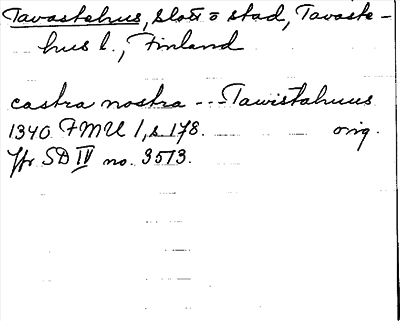 Tavastehus, slott o stad, Tavaste-
hus l., Finland
castra nostra --- Tawistahuus
1340 FMU 1, s. 178. orig.
Jfr SD IV no. 3513.